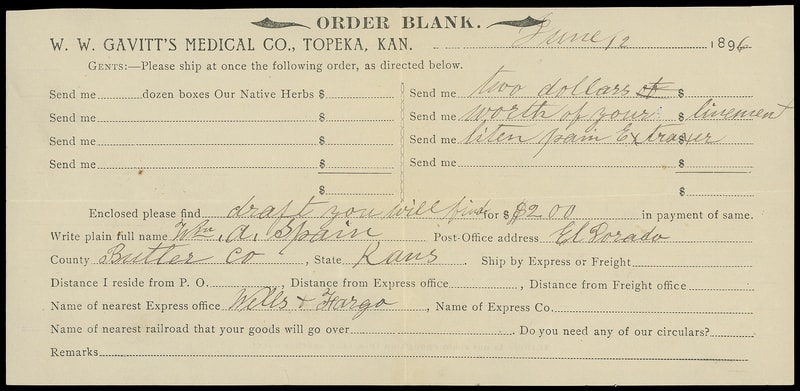 ORDER BLANK.
W. W. GAVITT'S MEDICAL CO., TOPEKA, KAN. June 12 1896
GENTS:—Please ship at once the following order, as directed below.
Send me dozen boxes Our Native Herbs $
Send me $
Send me $
Send me $
$
Send me two dollars $
Send me worth of your $ linement
Send me liten pain Extraxer $
Send me $
$
Enclosed please find draft you will find for $ $2 00 in payment of same.
Write plain full name Wm. A. Spain Post-Office address El Dorado
County Butler Co, State Kans Ship by Express or Freight
Distance I reside from P. O. , Distance from Express office , Distance from Freight office
Name of nearest Express office Wells + Fargo, Name of Express Co.
Name of nearest railroad that your goods will go over . Do you need any of our circulars?
Remarks